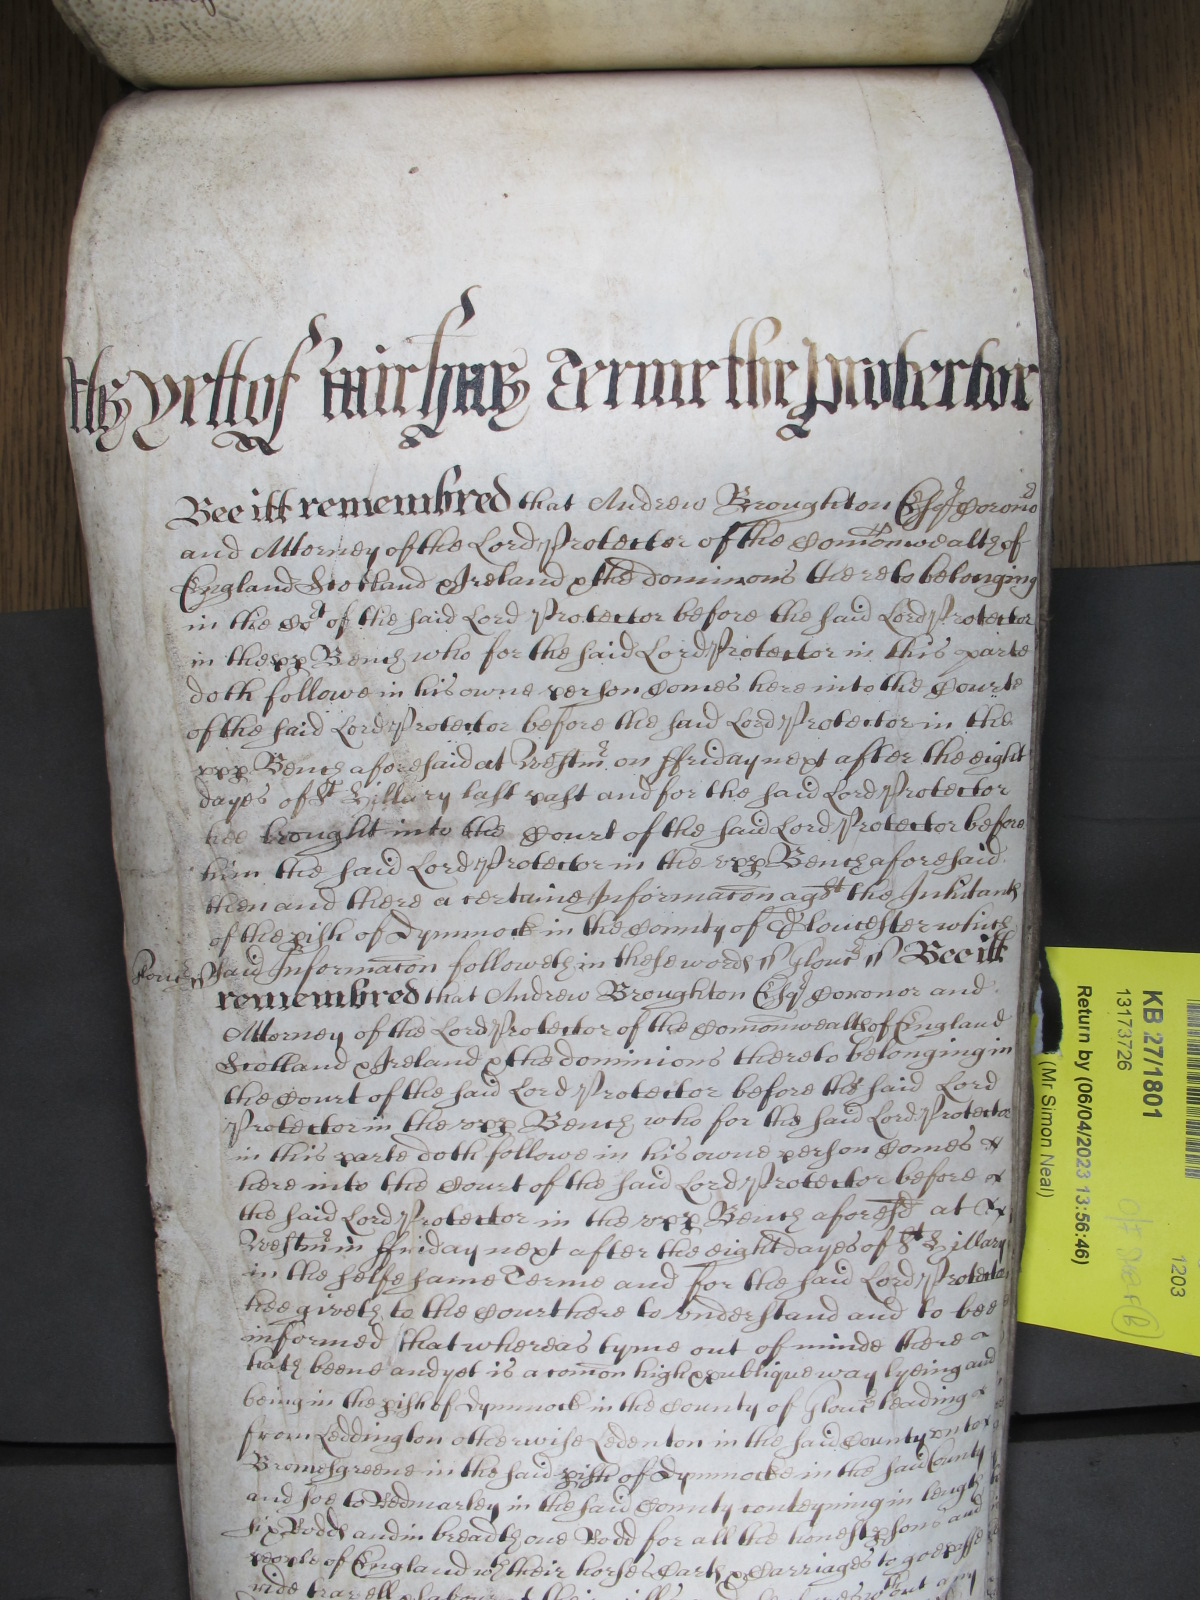 Yett of Michaels Terme the Protector
Bee itt remembred that Andrew Broughton Esqr Corono
and Attorney of the Lord Protector of the Comonwealth of
England Scotland & Ireland & the dominions thereto belonging
in the Cot of the said Lord Protector before the said Lord Protector
in the upp Bench who for the said Lord Protector in this parte
doth followe in his owne person Comes here into the Courte
of the said Lord Protector before the said Lord Protector in the
upp Bench aforesaid at Westmr on ffriday next after the eight
dayes of St Hillary last past and for the said Lord Protector
hee brought into the Court of the said Lord Protector before
him the said Lord Protector in the upp Bench aforesaid
then and there a certaine Informacon agst the Inhitants
of the pish of Dymmock in the County of Gloucester which
said Informacon followeth in these words ss Glouc ss Bee itt
remembred that Andrew Broughton Esqr Coronor and
Attorney of the Lord Protector of the Comonwealth of England
Scotland & Ireland & the dominions thereto belonging in
the Court of the said Lord Protector before the said Lord
Protector in the upp Bench who for the said Lord Protector
in this parte doth followe in his owne person Comes
here into the Court of the said Lord Protector before
the said Lord Protector in the upp Bench aforesd at
Westmr on ffriday next after the eight dayes of St Hillary
in the selfe same Terme and for the said Lord Protector
hee giveth to the Court here to understand and to bee
informed that whereas tyme out of minde there
hath beene and yet is a comon high & publique way lyeing and
being in the pish of Dymmock in the County of Glouc leading
from Leddington otherwise Ledenton in the said County unto
Bromesgreene in the said pish of Dymmocke in the said County
and soe to Redmarley in the said County conteyning in length
six Rodds and in breadth one Rodd for all the honest psons and
people of England wth their horses Carts & Carriages to goe passe
ride travell & labour at their will
KB 27/1801
13173726
Return by (06/04/2023 13:56:46)
(Mr Simon Neal)
1203